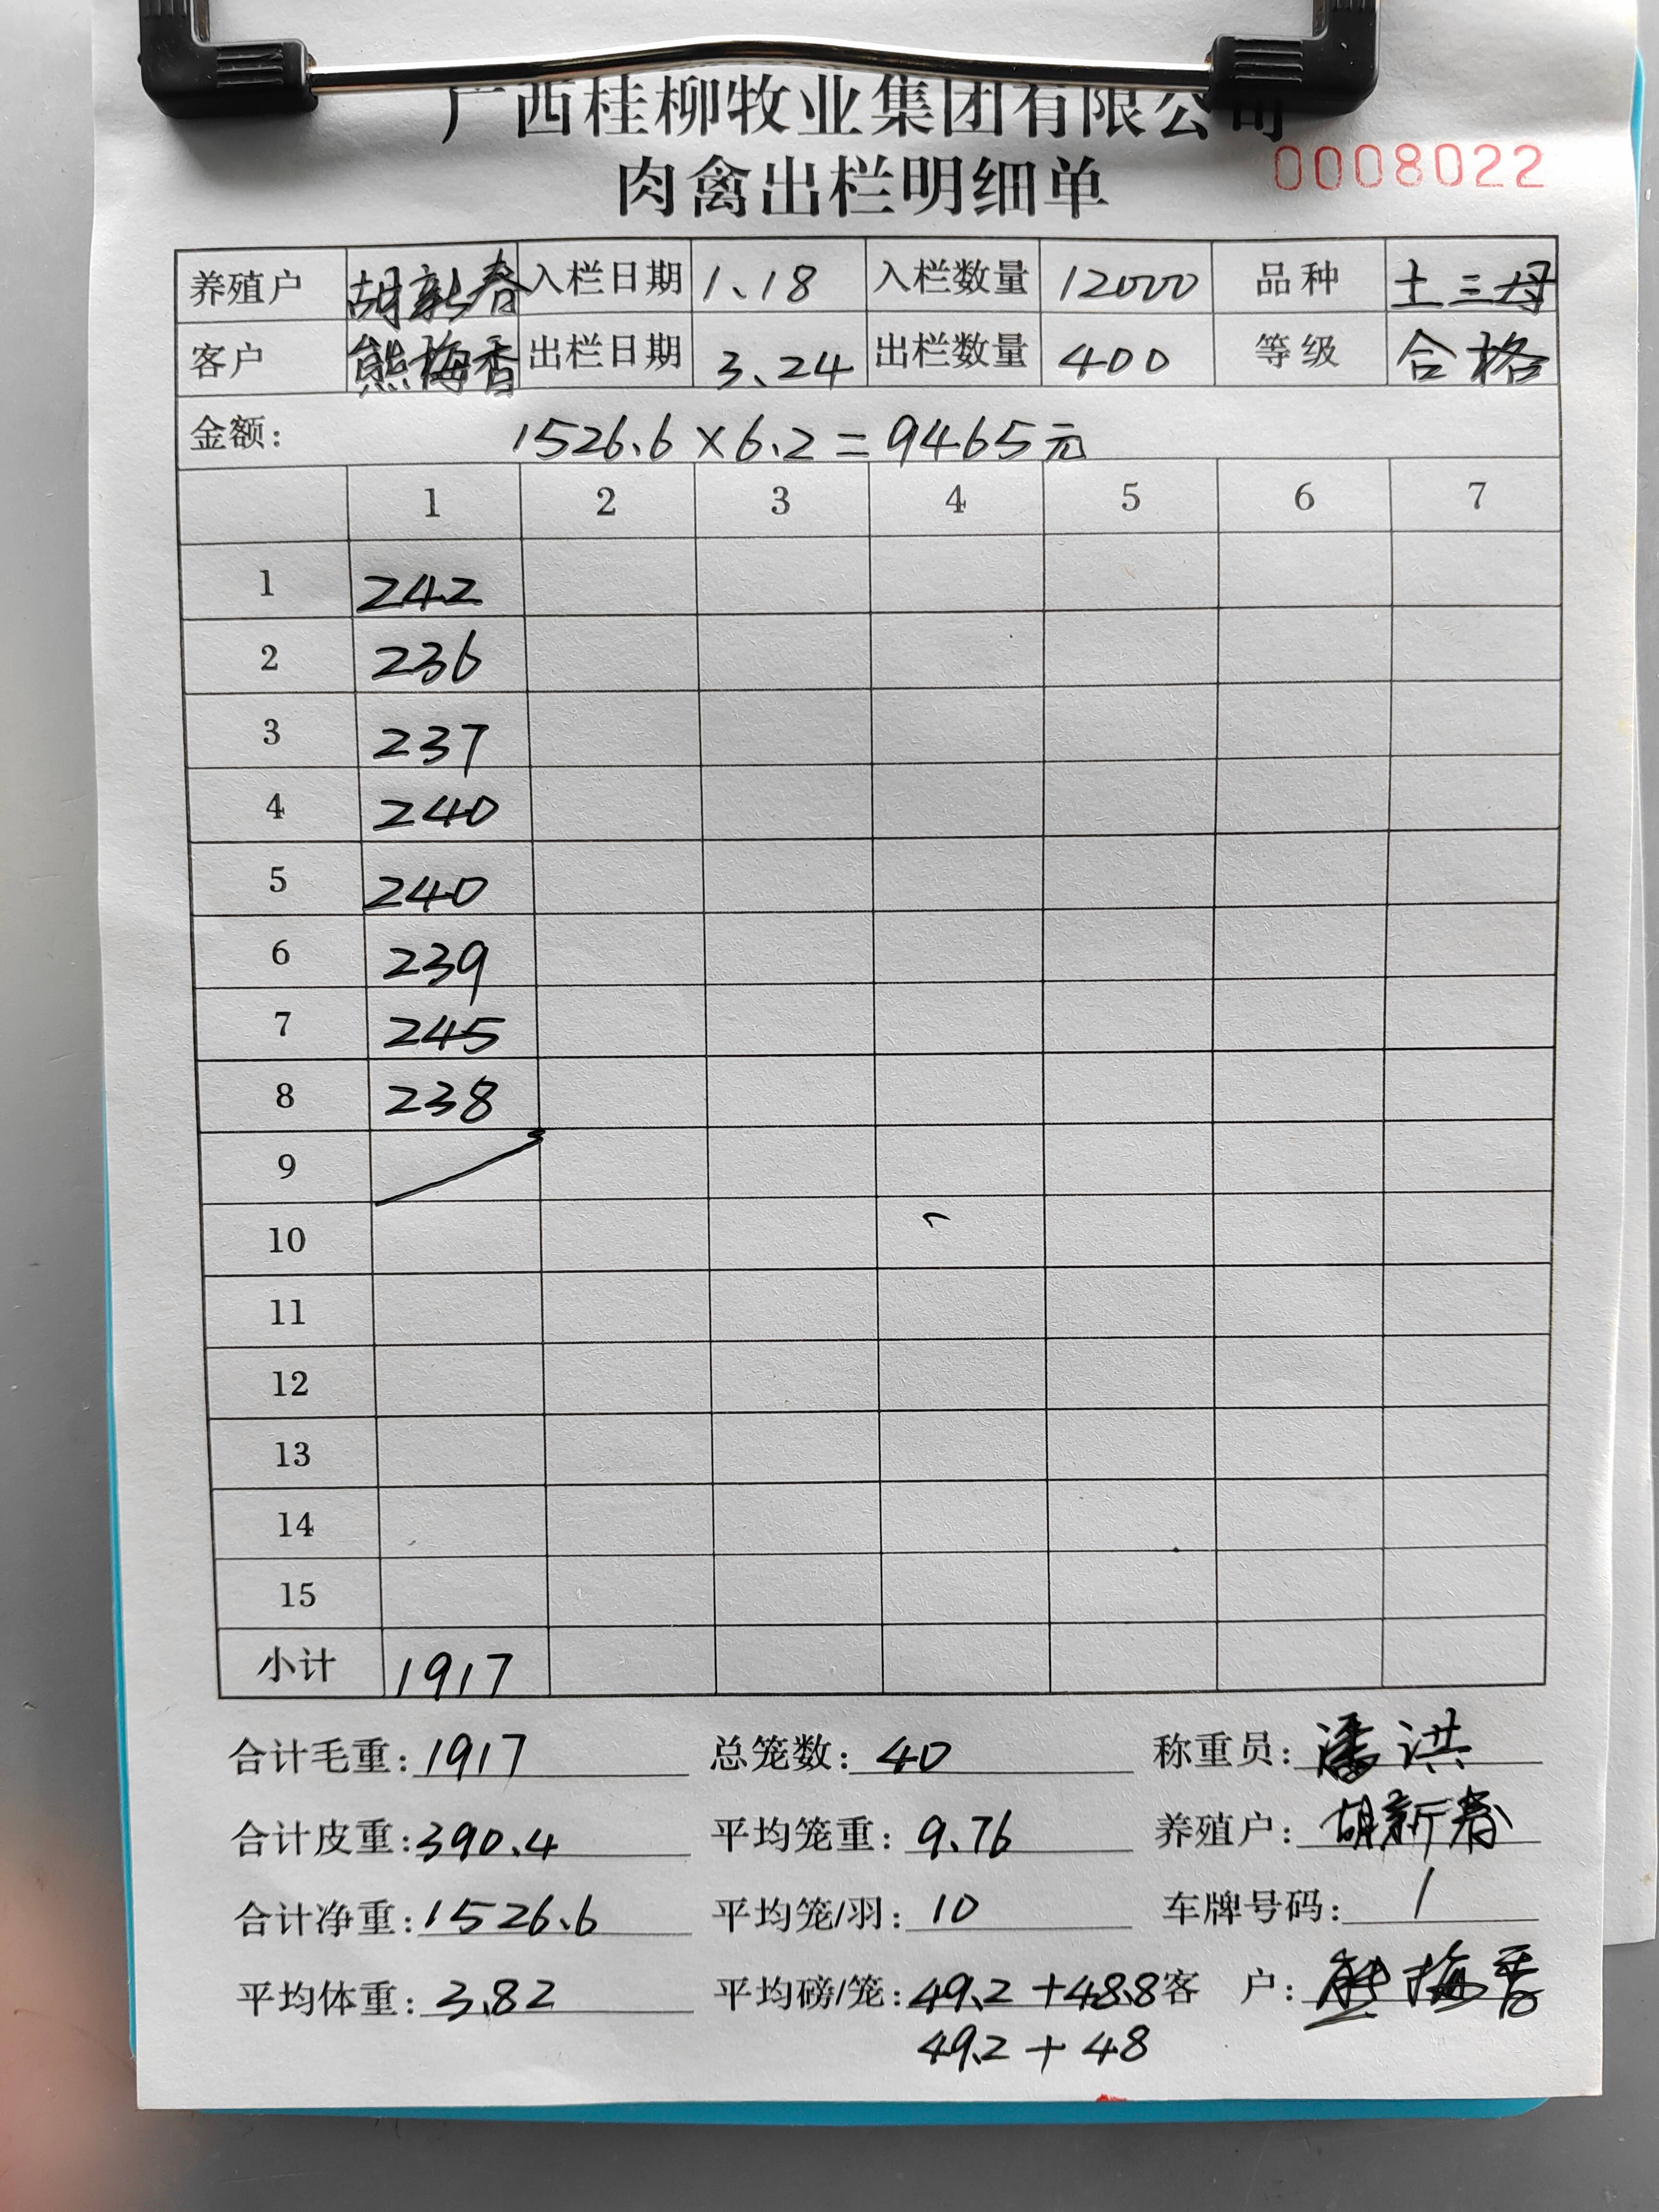 广西桂柳牧业集团有限公司
肉禽出栏明细单 0008022
养殖户 胡新春 入栏日期 1.18 入栏数量 12000 品种 土三母
客户 熊梅香 出栏日期 3.24 出栏数量 400 等级 合格
金额: 1526.6×6.2=9465元
1 2 3 4 5 6 7
1 242
2 236
3 237
4 240
5 240
6 239
7 245
8 238
9
10
11
12
13
14
15
小计 1917
合计毛重: 1917 总笼数: 40 称重员: 潘洪
合计皮重: 390.4 平均笼重: 9.76 养殖户: 胡新春
合计净重: 1526.6 平均笼/羽: 10 车牌号码: 1
平均体重: 3.82 平均磅/笼: 49.2+48.8 客 户: 熊梅香
49.2+48